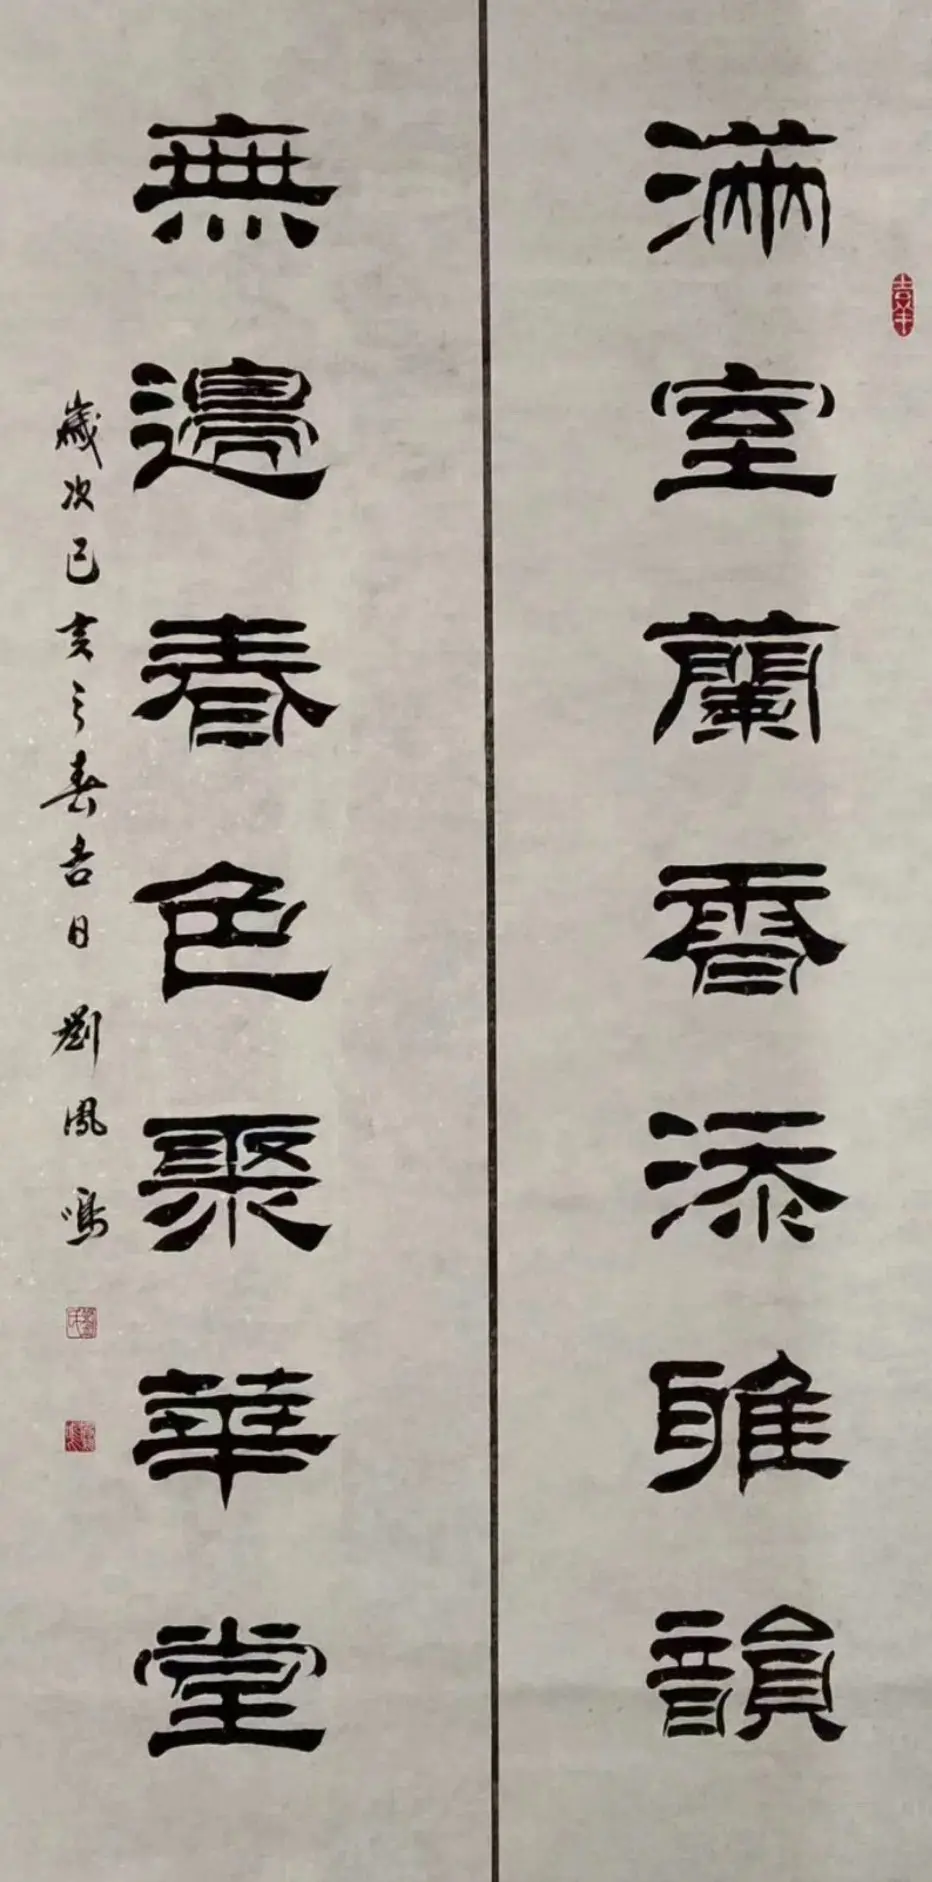 滿室蘭香添雅韻
無邊春色聚華堂
歲次己亥之春吉日 劉鳳鳴